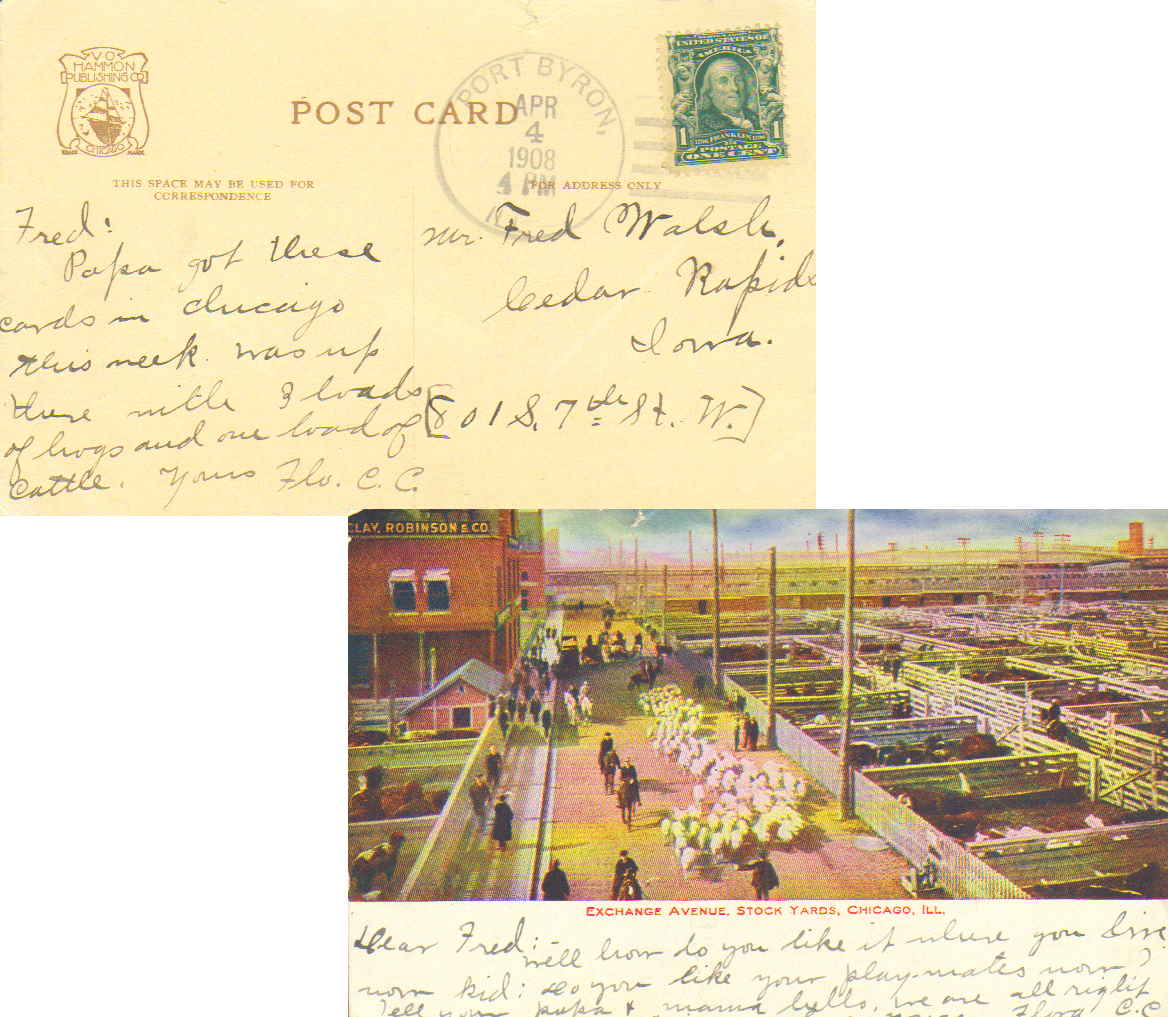 V O
HAMMON
PUBLISHING CO
CHICAGO
TRADE MARK
POST CARD
PORT BYRON,
APR
4
1908
4 PM
UNITED STATES OF
AMERICA
1 FRANKLIN 1
POSTAGE
ONE CENT
THIS SPACE MAY BE USED FOR
CORRESPONDENCE
FOR ADDRESS ONLY
Fred:
Papa got these
cards in chicago
this week. was up
there with 3 loads
of hogs and one load of
cattle. Yours Flo. C. C.
Mr. Fred Walsh,
Cedar Rapids
Iowa.
[801 S. 7th St. W.]
CLAY, ROBINSON & CO
EXCHANGE AVENUE, STOCK YARDS, CHICAGO, ILL.
Dear Fred:-
Well how do you like it where you live
now kid: do you like your play-mates now?
Tell your papa & mama hello, we are all right
Flora C.C.